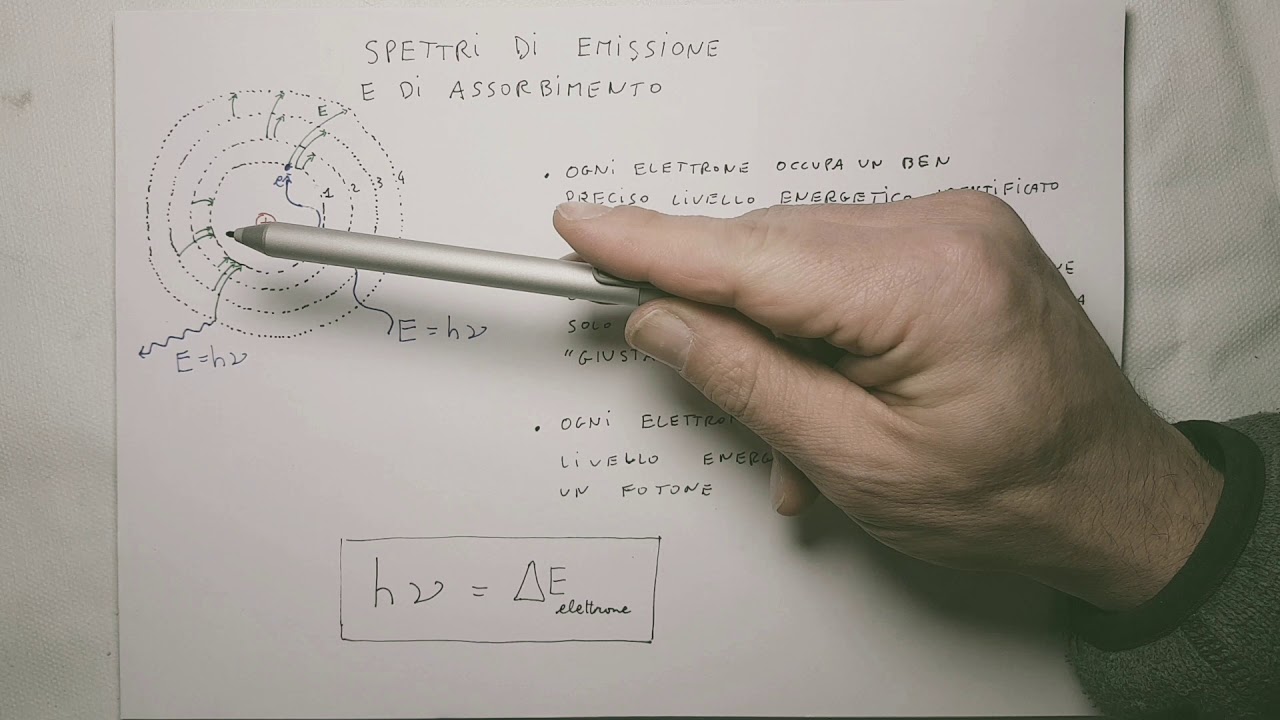 SPETTRI DI EMISSIONE
E DI ASSORBIMENTO
E
e⁻
1 2 3 4
+
E = hν
E = hν
• OGNI ELETTRONE OCCUPA UN BEN
PRECISO LIVELLO ENERGETICO IDENTIFICATO
SOLO
"GIUSTA
• OGNI
LIVELLO
UN FOTONE
hν = ΔE elettrone